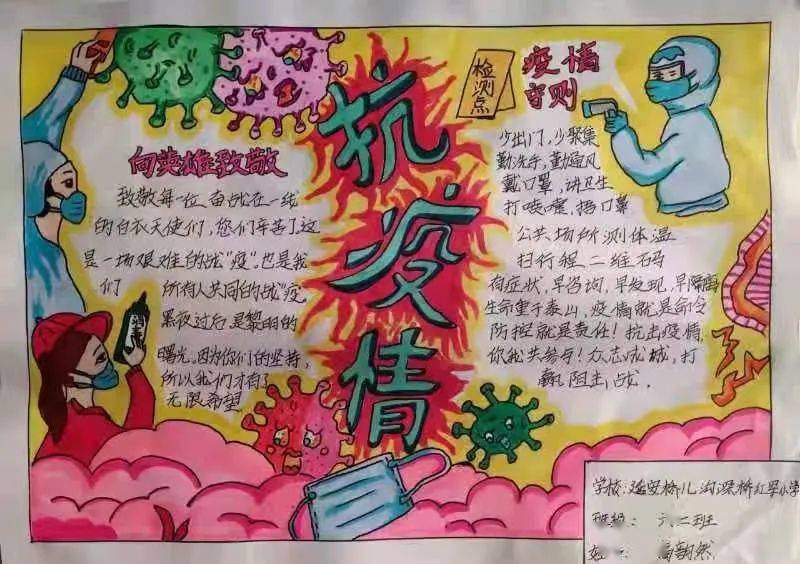 抗疫情
向英雄致敬
致敬每一位奋战在一线
的白衣天使们,您们辛苦了这
是一场艰难的战"疫".也是我
们 所有人共同的战"疫"
黑夜过后是黎明的
曙光.因为你们的坚持,
所以我们才有了
无限希望
消毒
检测点
疫情
守则
少出门,少聚集
勤洗手,勤通风
戴口罩,讲卫生
打喷嚏,捂口罩
公共场所测体温
扫行程二维码
有症状,早咨询,早发现,早隔离
生命重于泰山,疫情就是命令
防控就是责任!抗击疫情,
你我共参与!众志成城,打
赢阻击战.
学校:延安桥儿沟深桥红军小学
班级: 六.二班